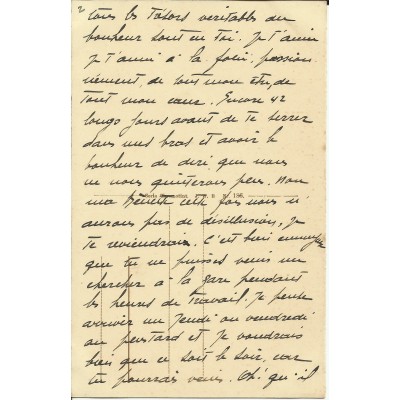 2
tous les trésors veritables du
bonheur sont en toi. Je t'aime
je t'aime à la folie, passion
nément, de tout mon être, de
tout mon cœur. Encore 42
longs jours avant de te serrer
dans mes bras et avoir le
bonheur de dire que nous
ne nous quitterons plus. Non
ma cette fois nous n'
aurons pas de désillusion, je
te reviendrai. C'est bien ennuyeux
que tu ne puisses venir me
chercher à la gare pendant
les heures de travail. Je pense
arriver un Jeudi ou vendredi
au plus tard et je voudrais
bien que ce soit le soir, car
tu pourrais venir. Oh! qu'il